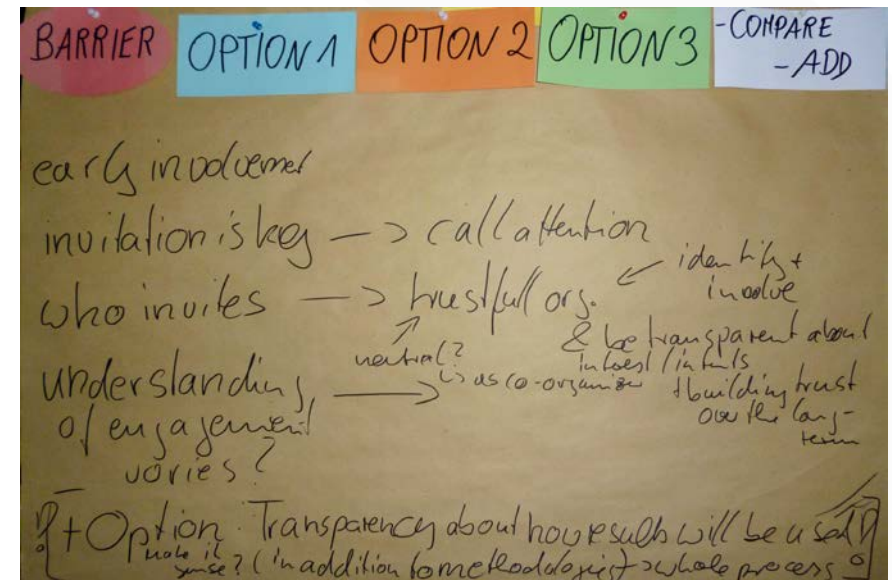 BARRIER
OPTION 1
OPTION 2
OPTION 3
-COMPARE
-ADD
early involvement
invitation is key —> call attention
who invites —> trustfull org.
identify +
involve
neutral?
as co-organizer
& be transparent about
interest / intents
+ building trust
over the long-
term
understanding
of engagement
varies?
+ Option: Transparency about how results will be used
make it
sense? (in addition to methodologies whole process